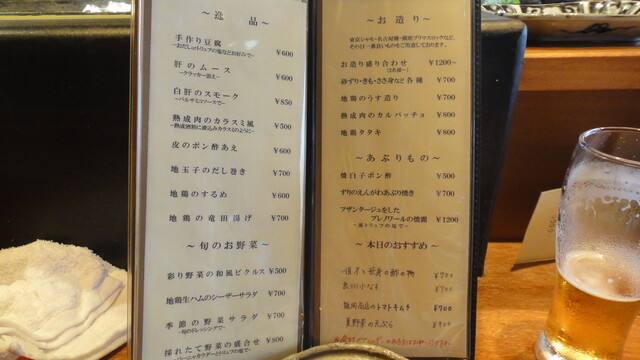 ～逸　品～
手作り豆腐
～おだしorトリュフの塩などお好みで～ ¥600
肝のムース
～クラッカー添え～ ¥600
白肝のスモーク
～バルサミコソースで～ ¥850
熟成肉のカラスミ風 ¥500
皮のポン酢あえ ¥600
地玉子のだし巻き ¥700
地鶏のするめ ¥600
地鶏の竜田揚げ ¥700
～旬のお野菜～
彩り野菜の和風ピクルス ¥500
地鶏生ハムのシーザーサラダ ¥700
季節の野菜サラダ ¥700
～旬のドレッシングで～
採れたて野菜の盛合せ ¥800
～お造り～
お造り盛り合わせ ¥1200～
砂ずり・きも・ささ身など各種 ¥700
地鶏のうす造り ¥700
熟成肉のカルパッチョ ¥800
地鶏タタキ ¥800
～あぶりもの～
焼白子ポン酢 ¥500
ずりのえんがわあぶり焼き ¥700
フザンタージュをした
ブレノワールの焼霜 ¥1200
～黒トリュフの塩で～
～本日のおすすめ～
の酢の物 ¥700
なす ¥700
のトマトキムチ ¥700
夏野菜の天ぷら